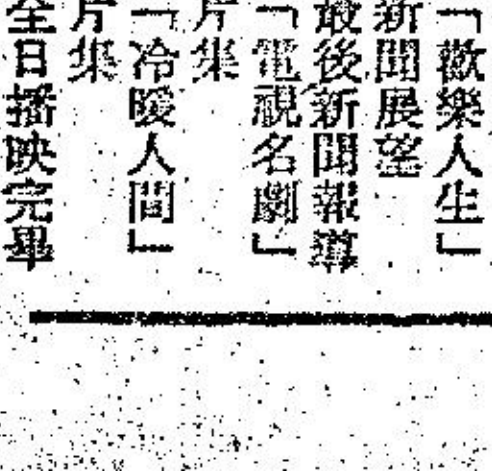 「歡樂人生」
新聞展望
最後新聞報導
「電視名劇」
片集
「冷暖人間」
片集
全日播映完畢